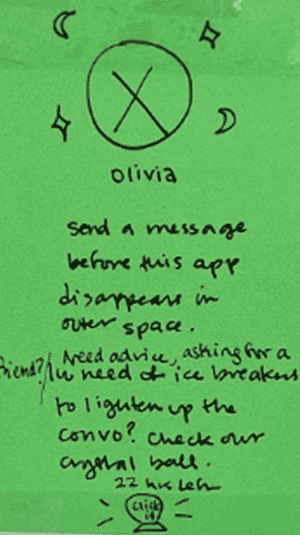 olivia
send a message
before this app
disappears in
outer space.
Need advice, asking for a
friend?/In need of ice breakers
to lighten up the
convo? Check our
crystal ball.
22 hrs left
click it